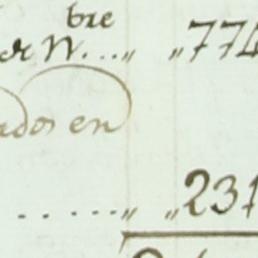 bre
er N....,, ,,774
ados en
......,, ,,231